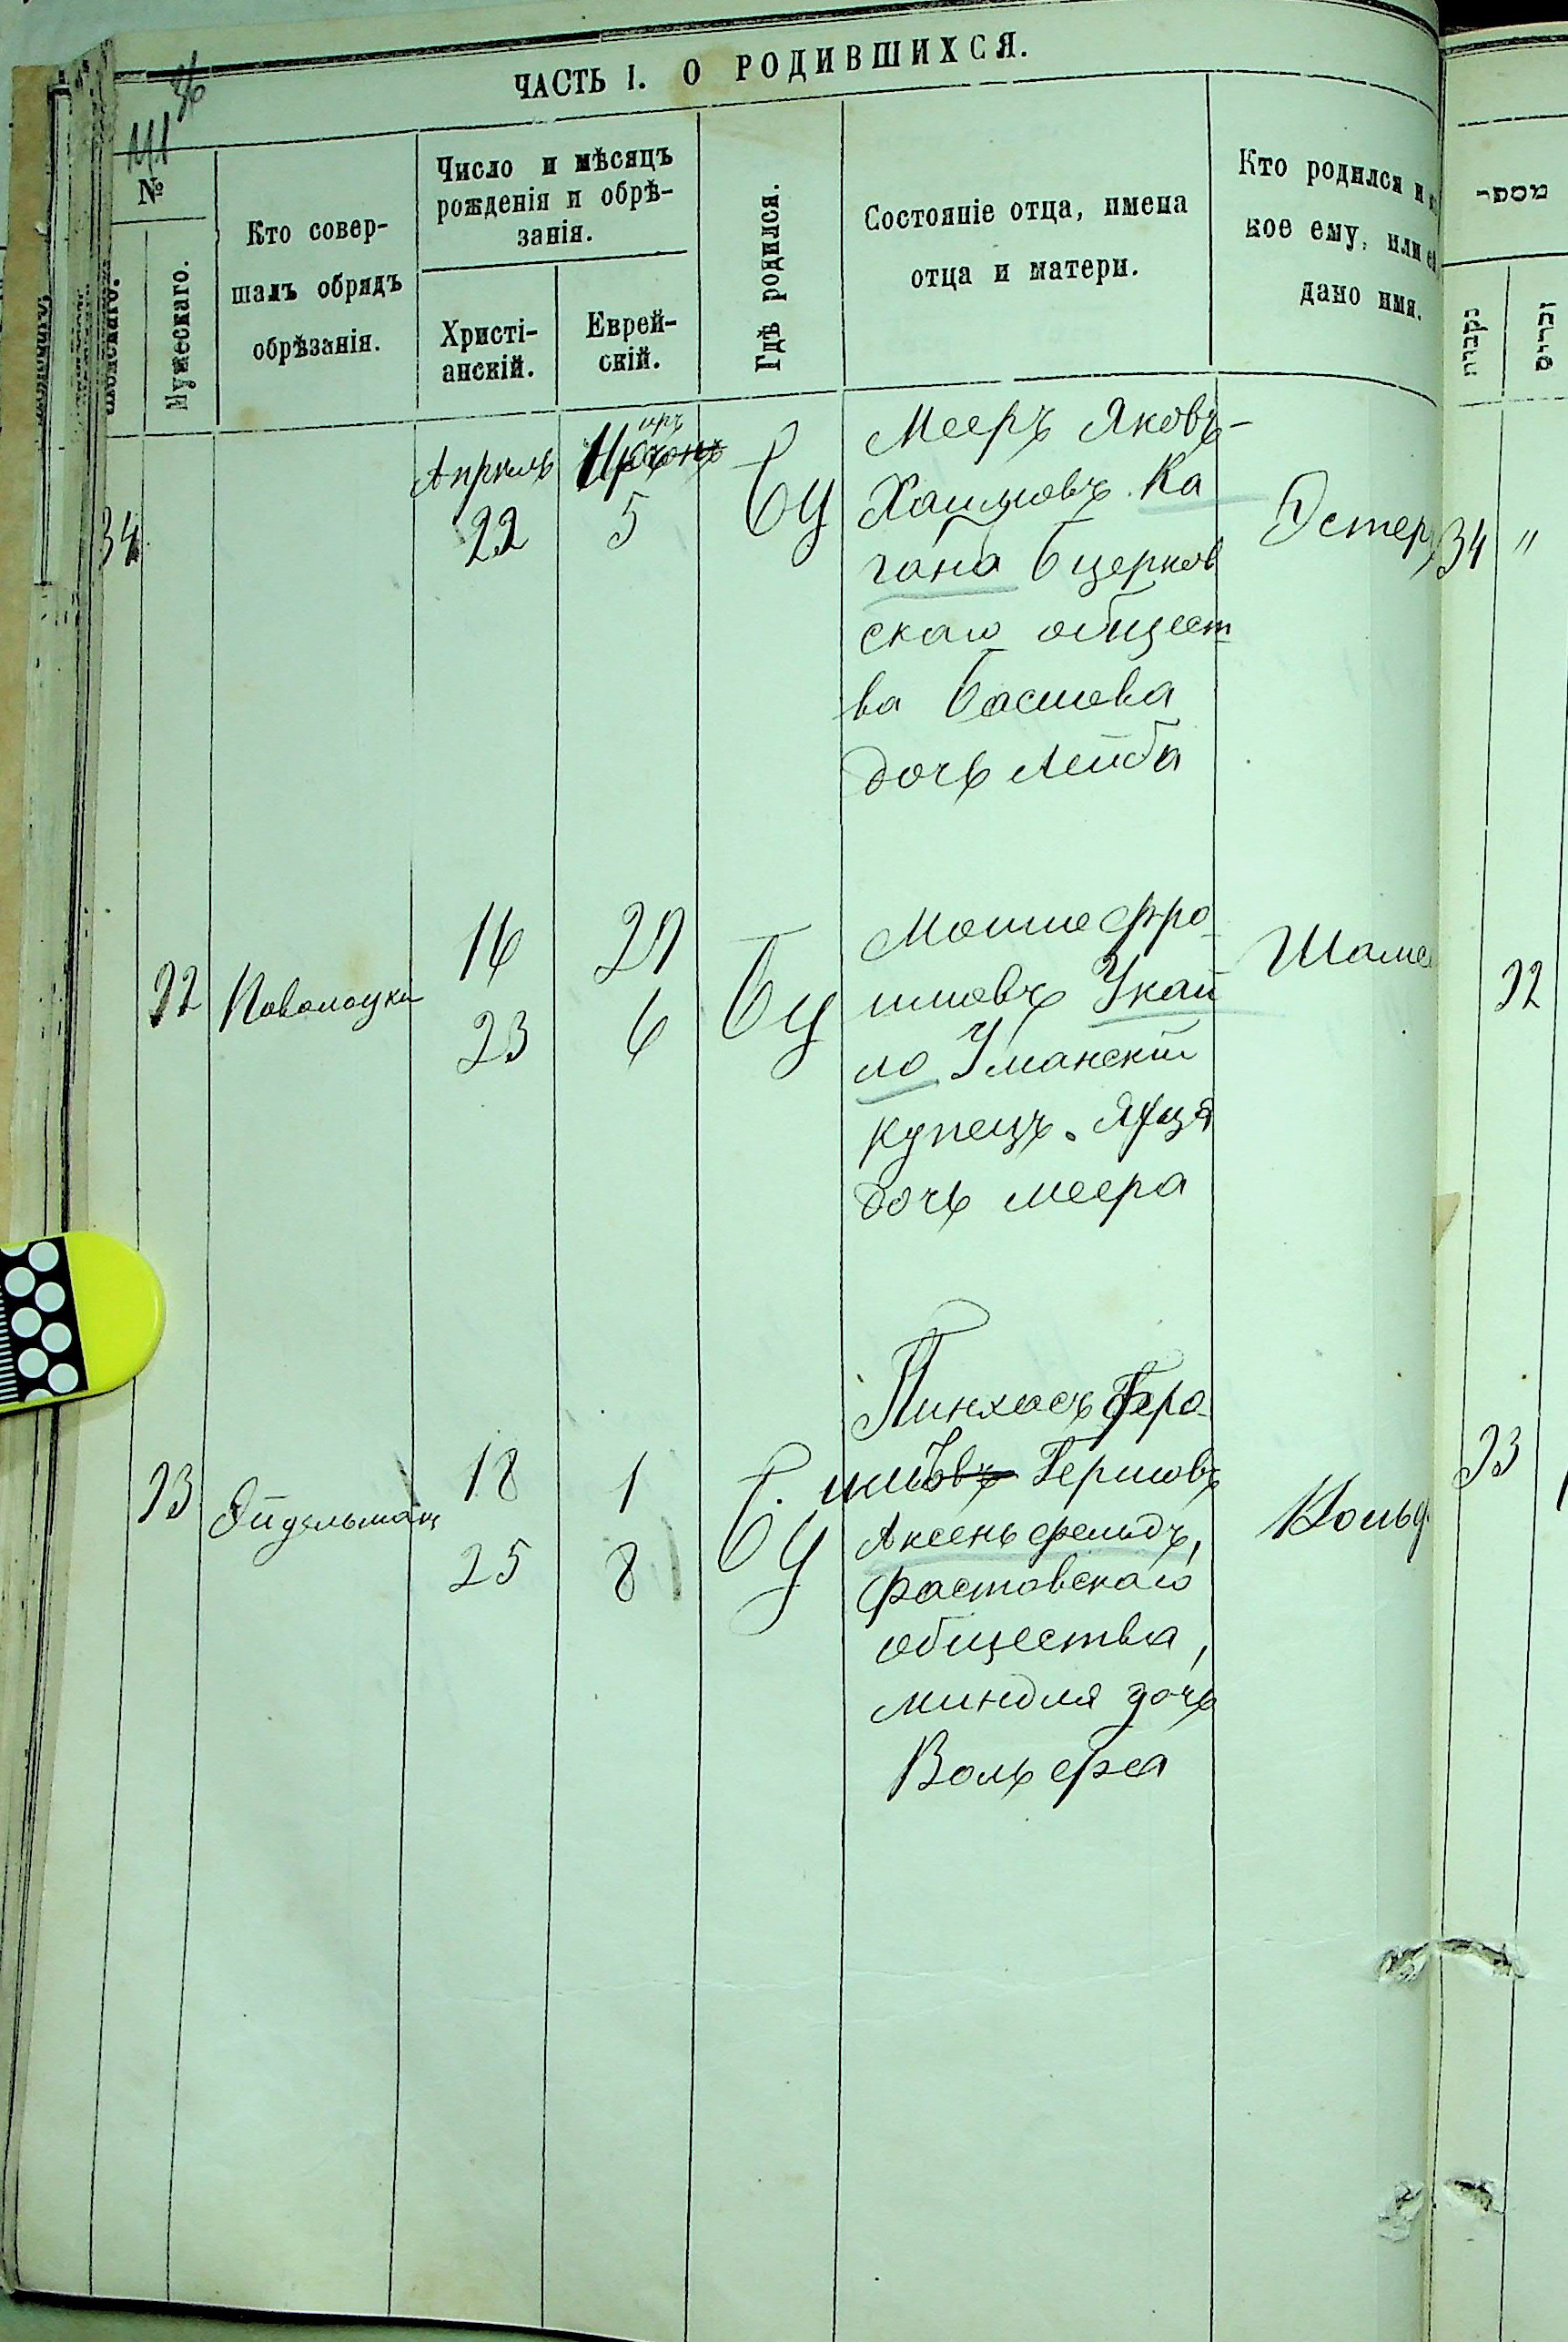 ЧАСТЬ I. О РОДИВШИХСЯ.
№
Мужескаго.
Кто совер-
шалъ обрядъ
обрѣзанія.
Число и мѣсяцъ
рожденія и обрѣ-
занія.
Христі-
анскій.
Еврей-
скій.
Гдѣ родился.
Состояніе отца, имена
отца и матери.
Кто родился и
кое ему, или
дано имя.
מספר
נקבות
34
Апрель
22
иръ
5
БЦ
Мееръ Яковъ-
Хаимовъ Ка
гана Бцерков
скаго общест
ва Басшева
дочь Лейба
Эстер
34 "
22
Поволоцки
16
23
27
6
БЦ
Мошко Фро
имовъ Укай
ло Уманскій
купецъ.
дочь Меера
22
23
Эйдельманъ
18
25
1
8
БЦ
Пинхасъ
Гершовъ
Аксенфельдъ,
Фастовскаго
общества,
Миндля дочь
Вольфа
23